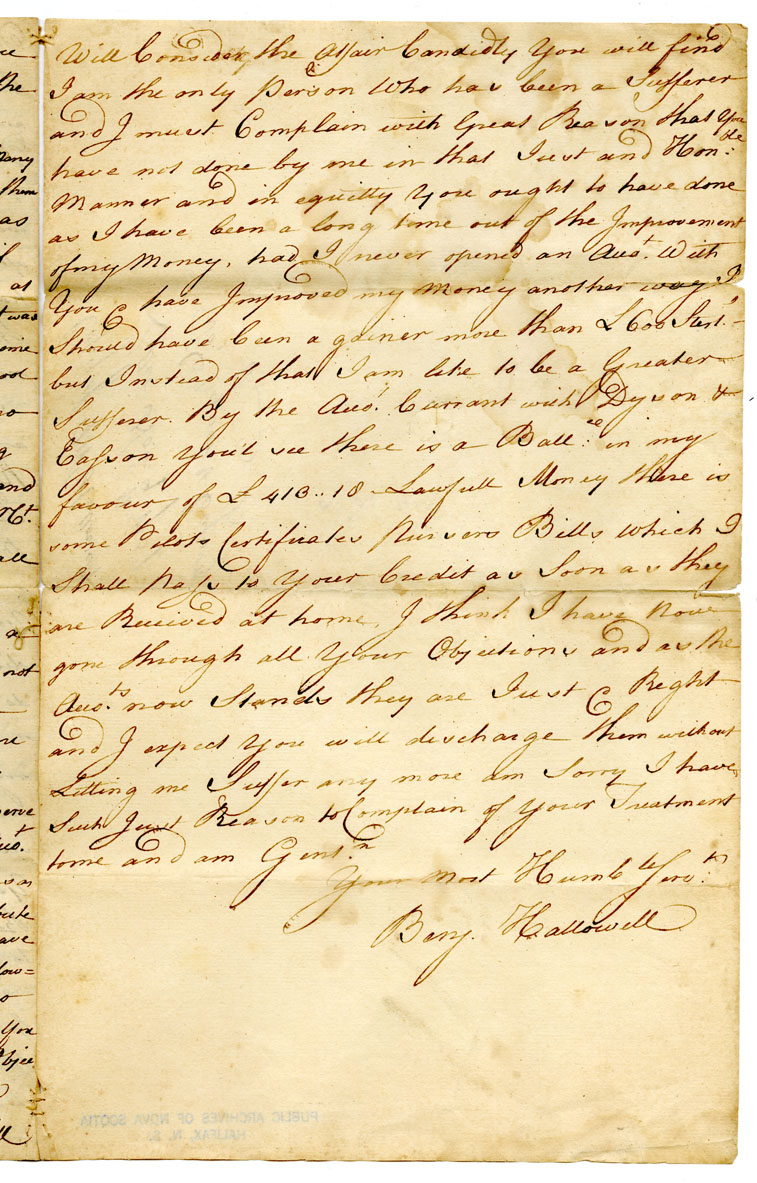 Will Consider the Affair Candidly You will find
I am the only Person Who has been a Sufferer
and I must Complain with Great Reason that You
have not done by me in that Just and Honble
Manner and in equitty You ought to have done
as I have been a long time out of the Improvement
of my Money, had I never opened an Acot. With
You & have Improved my Money another way I
Should have been a gainer more than £600 Sterl.
but Instead of that I am like to be a Greater
Sufferer. By the Acot. Currant with Dyson &
Easson You'l see there is a Ballce. in my
favour of £413..18 Lawfull Money there is
some Pilots Certificates Pursers Bills which I
Shall Pass to Your Credit as Soon as they
are Received at home, I think I have Now
gone through all Your Objections and as the
Acots. now Stands they are Just & Right
and I expect You will discharge them without
Letting me Suffer any more am Sorry I have
Such Just Reason to Complain of Your Treatment
to me and am Gentn.
Your Most Humble Servt.
Benj. Hallowell
PUBLIC ARCHIVES OF NOVA SCOTIA
HALIFAX, N. S.